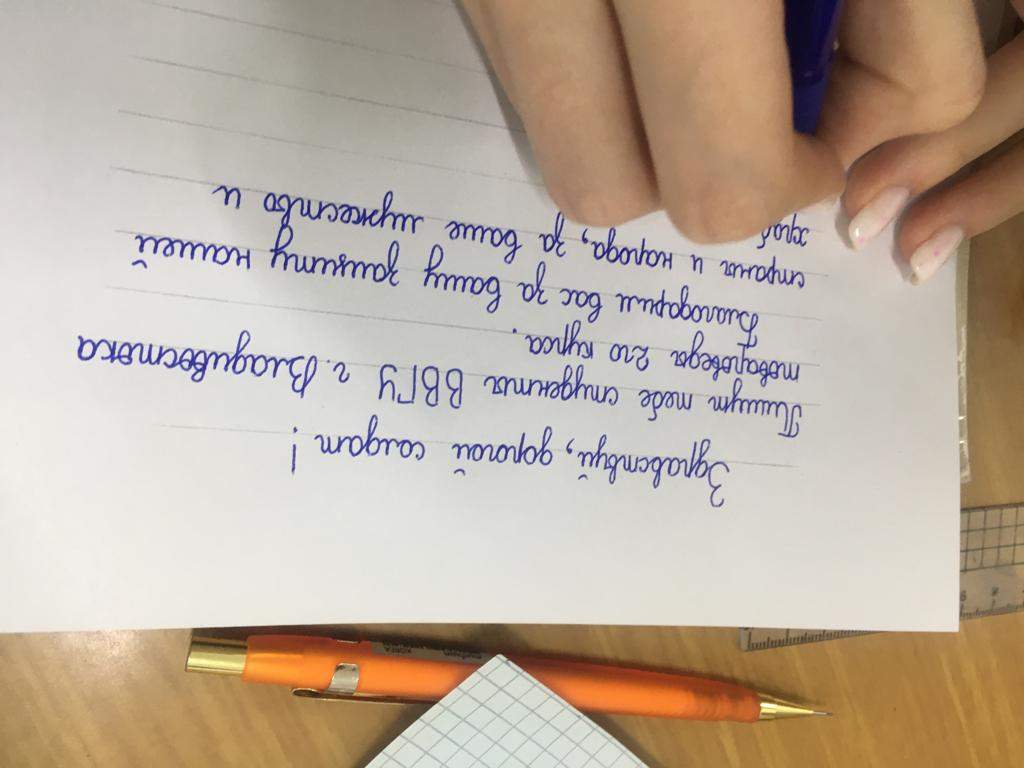 Здравствуй, дорогой солдат!
Пишут тебе студента ВВГУ г. Владивостока
товароведа 2го курса.
Благодорим вас за вашу защиту нашей
страны и народа, за ваше мужество и
храб
KOREA